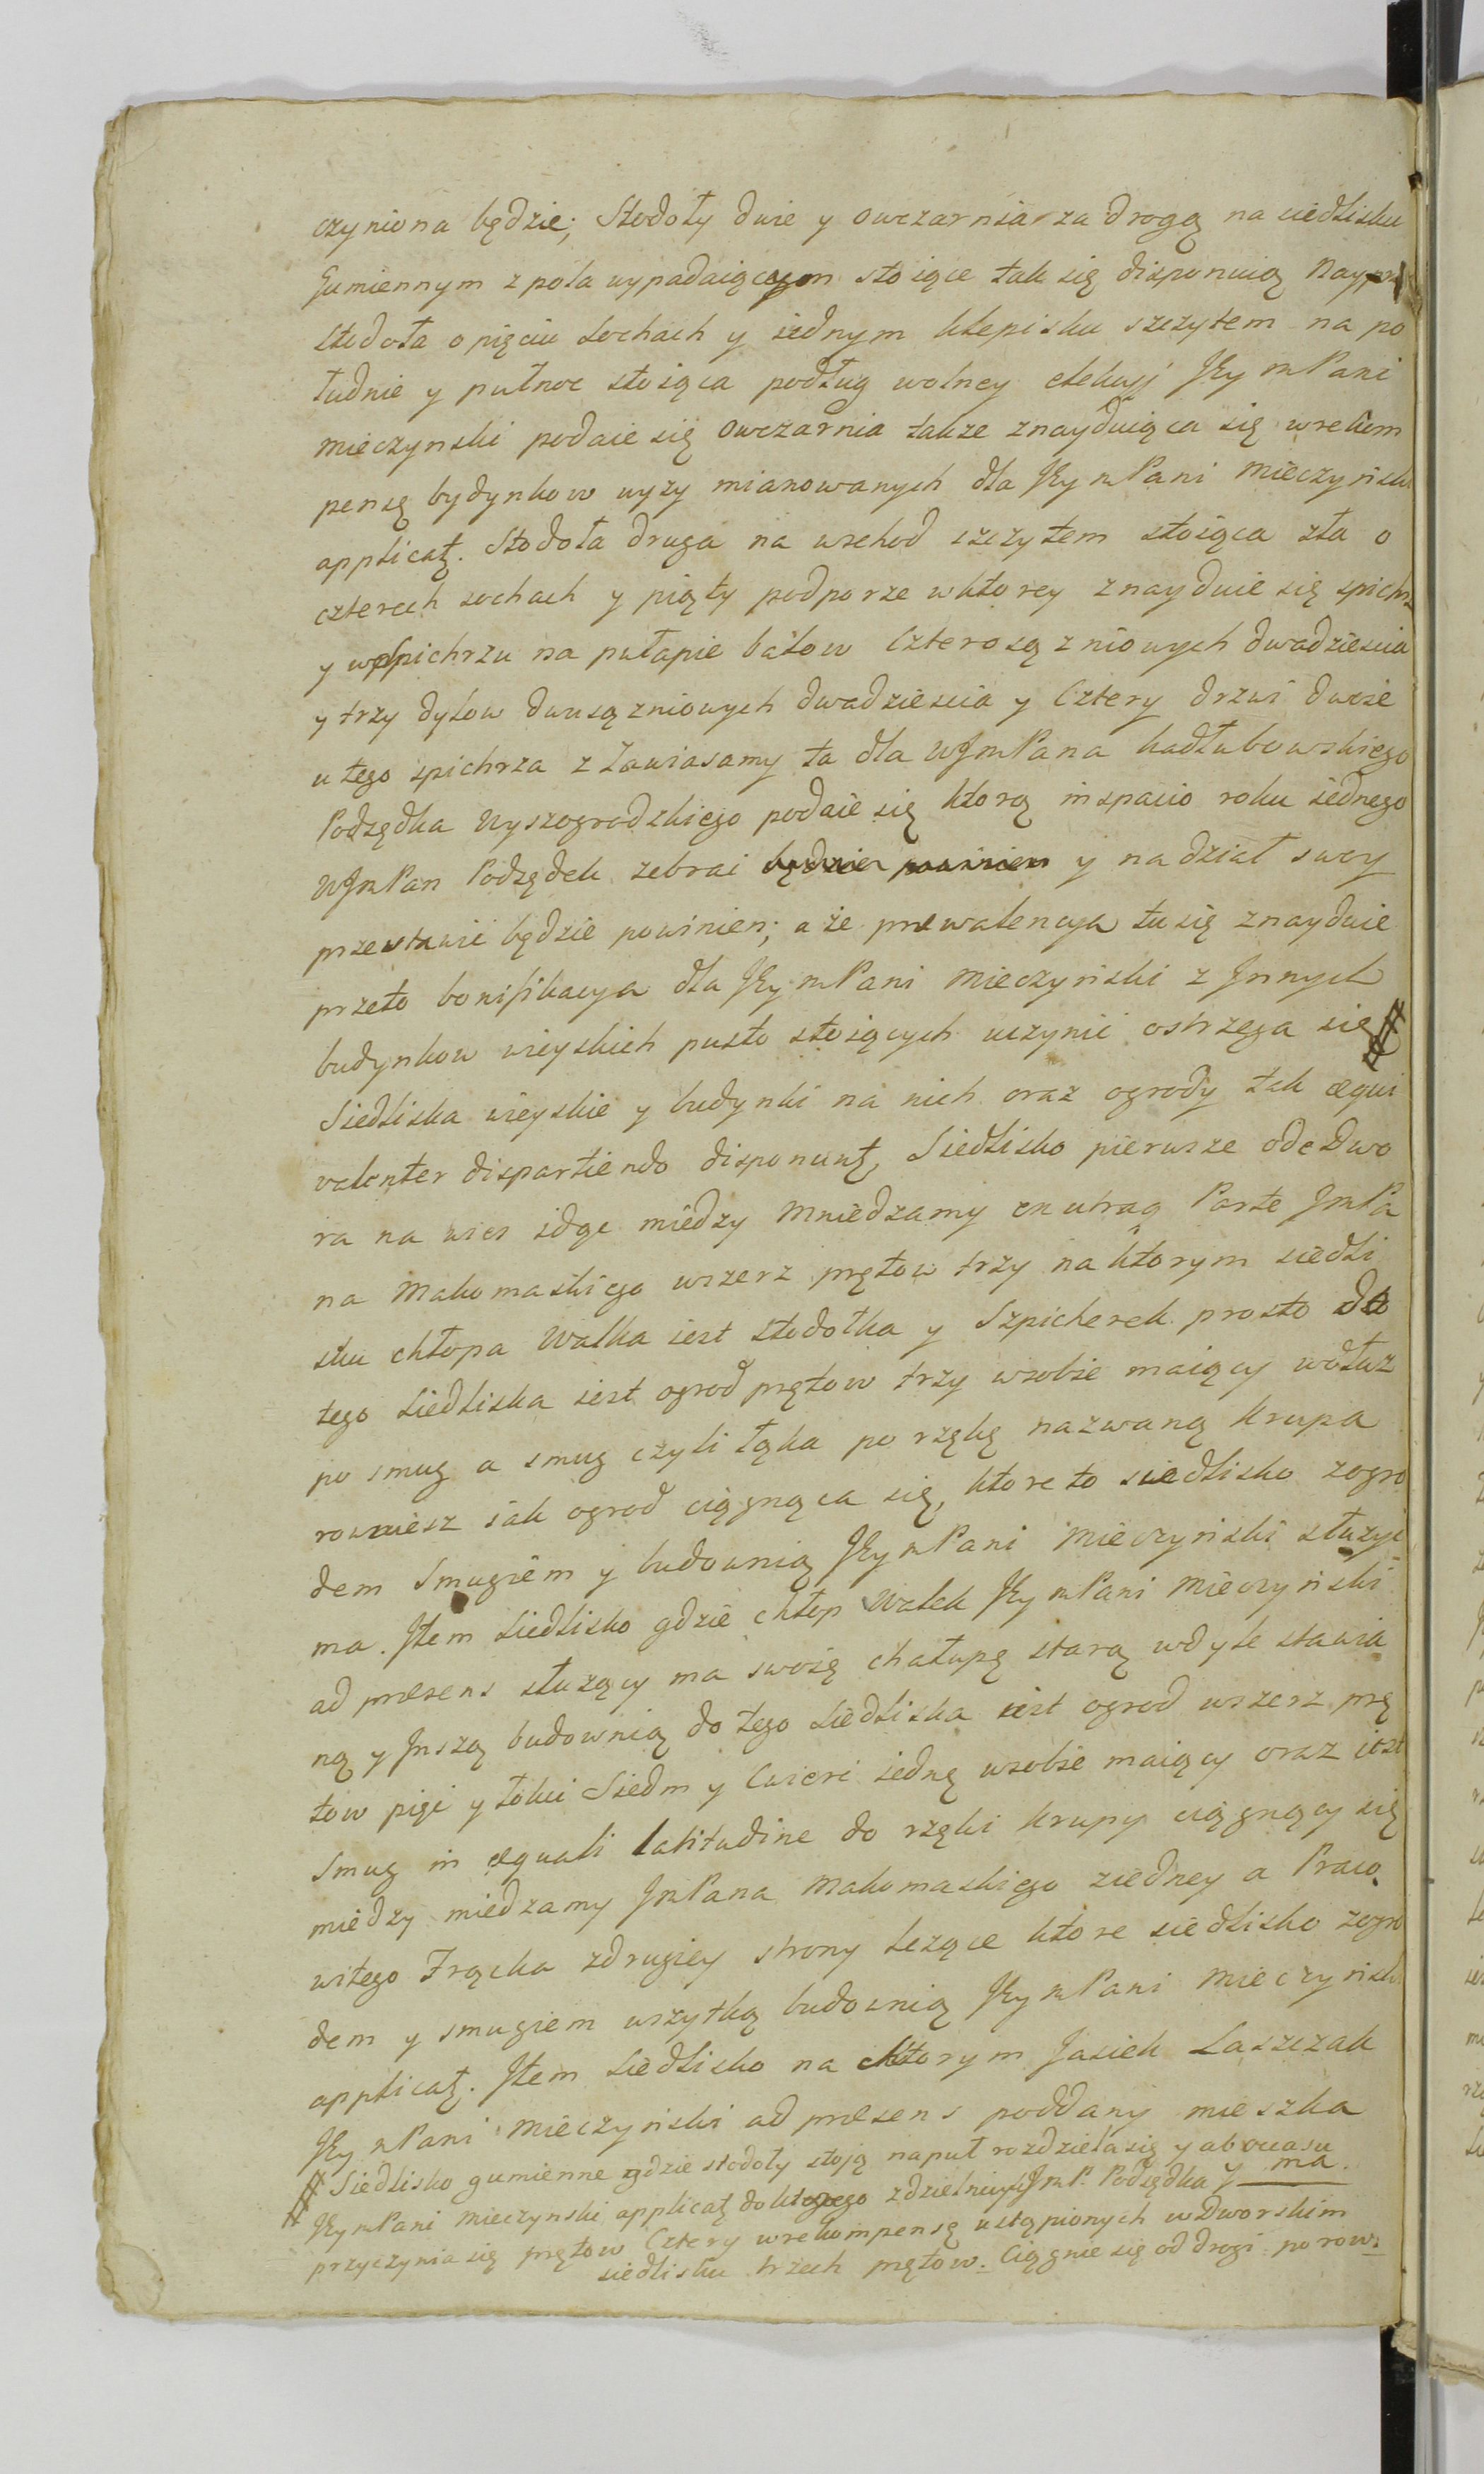 czyniona będzie; Stodoły dwie y owczarnia za drogą na siedlisku
Gumiennym z pola wypadaiącym stoiące tak się disponuią Nayprz
stodoła o pięciu sochach y iednym klepisku szczytem na po
łudnie y pułnoc stoiąca podług wolney elekcyj JEymPani
Mieczynski podaie się Owczarnia takze znayduiąca się wrekom
pensę bydynkow wyzy mianowanych dla JEymPani Mieczyńsk
applicat. Stodoła druga na wschod szczytem stoiąca zła o
czterech sochach y piąty podporze wktorey znayduie się spichrz
y wspichrzu na pułapie balow Czterosązniowych dwadziescia
y trzy dylow dwusązniowych dwadziescia y Cztery drzwi dwoie
u tego spichrza z Zawiasamy ta dla WJmPana Kadłubowskiego
Podsędka Wyszogrodzkiego podaie się ktorą in spacio roku iednego
WJmPan Podsędek zebrai będzie powinien y na dział swoy
przestawić będzie powinien; a że prewalencya tu się znayduie
przeto bonifikacya dla JEymPani Mieczyński z Jnnych
budynkow wieyskich pusto stoiących uczynić ostrzega się #
Siedliska wieyskie y budynki na nich oraz ogrody tak æqui
valenter dispartiendo disponunt, Siedlisko pierwsze ode Dwo
ra na wies idąc miedzy Mniedzamy ex utraq Parte JmPa
na Makomaskiego wszerz prętow trzy na ktorym siedli
sku chłopa Walka iest stodołka y Szpicherek prosto do
tego siedliska iest ogrod prętow trzy wsobie maiący wdłuz
po smug a smug czyli łąka po rzękę nazwaną Krupa
rowniesz iak ogrod ciągnąca się, ktore to siedlisko zogro
dem Smugiem y budownią JEymPani Mieczyński słuzyć
ma. Jtem siedlisko gdzie chłop Walek JEymPani Mieczyński
ad præsens słuzący ma swoię chałupę starą wdyle stawia
ną y Jnszą budownią do tego siedliska iest ogrod wszerz prę
tow pięć y łokci Siedm y Cwierć iednę wsobie maiący oraz iest
Smug in æquali latitudine do rzęki Krupy ciągnący się
miedzy miedzamy JmPana Makomaskiego ziedney a Praco
witego Frącka zdrugiey strony lezące ktore siedlisko zogro
dem y smugiem wszytką budownią JEymPani Mieczyńsk
applicat. Jtem siedlisko na ktorym Jasiek Laszczak
JEymPani Mieczyński ad præsens poddany mieszka
# Siedlisko gumienne gdzie stodoły stoją napuł rozdziela się y ab occasu ma
JEymPani Mieczynski applicat do ktorego zdzielnicy JmP. Podsędka
przyczynia się prętow Cztery wrekompensę ustąpionych wDworskim
siedlisku trzech prętow. Ciągnie się od drogi po row